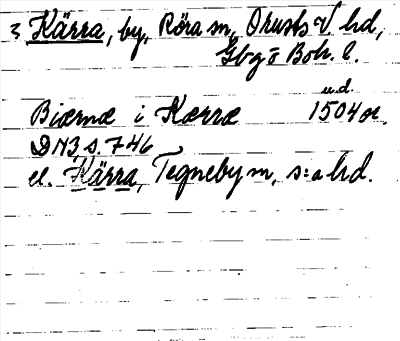 3 Kärra, by, Röra sn, Orusts V hd,
Gbg o Boh. l.
Biærnæ i Kærræ
u.d.
1504
DN3, s. 746
el. Kärra, Tegneby sn, s:a hd.